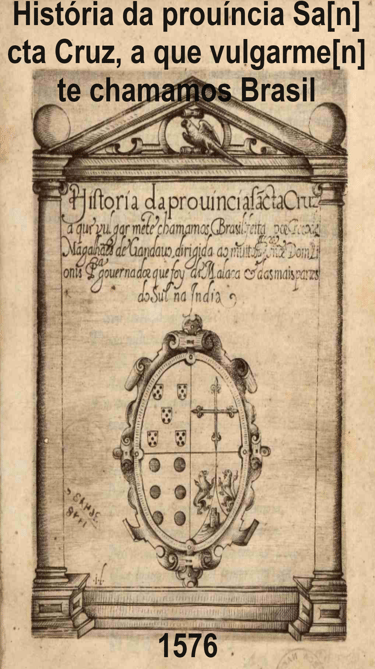 História da prouíncia Sa[n]
cta Cruz, a que vulgarme[n]
te chamamos Brasil
Historia da prouincia sãcta Cruz
a que vulgar mẽte chamamos Brasil feita por
Magalhães de Gandauo, dirigida ao muito Dom Li
onis Pª gouernador que foy de Malaca & das mais partes
do Sul na India
1576